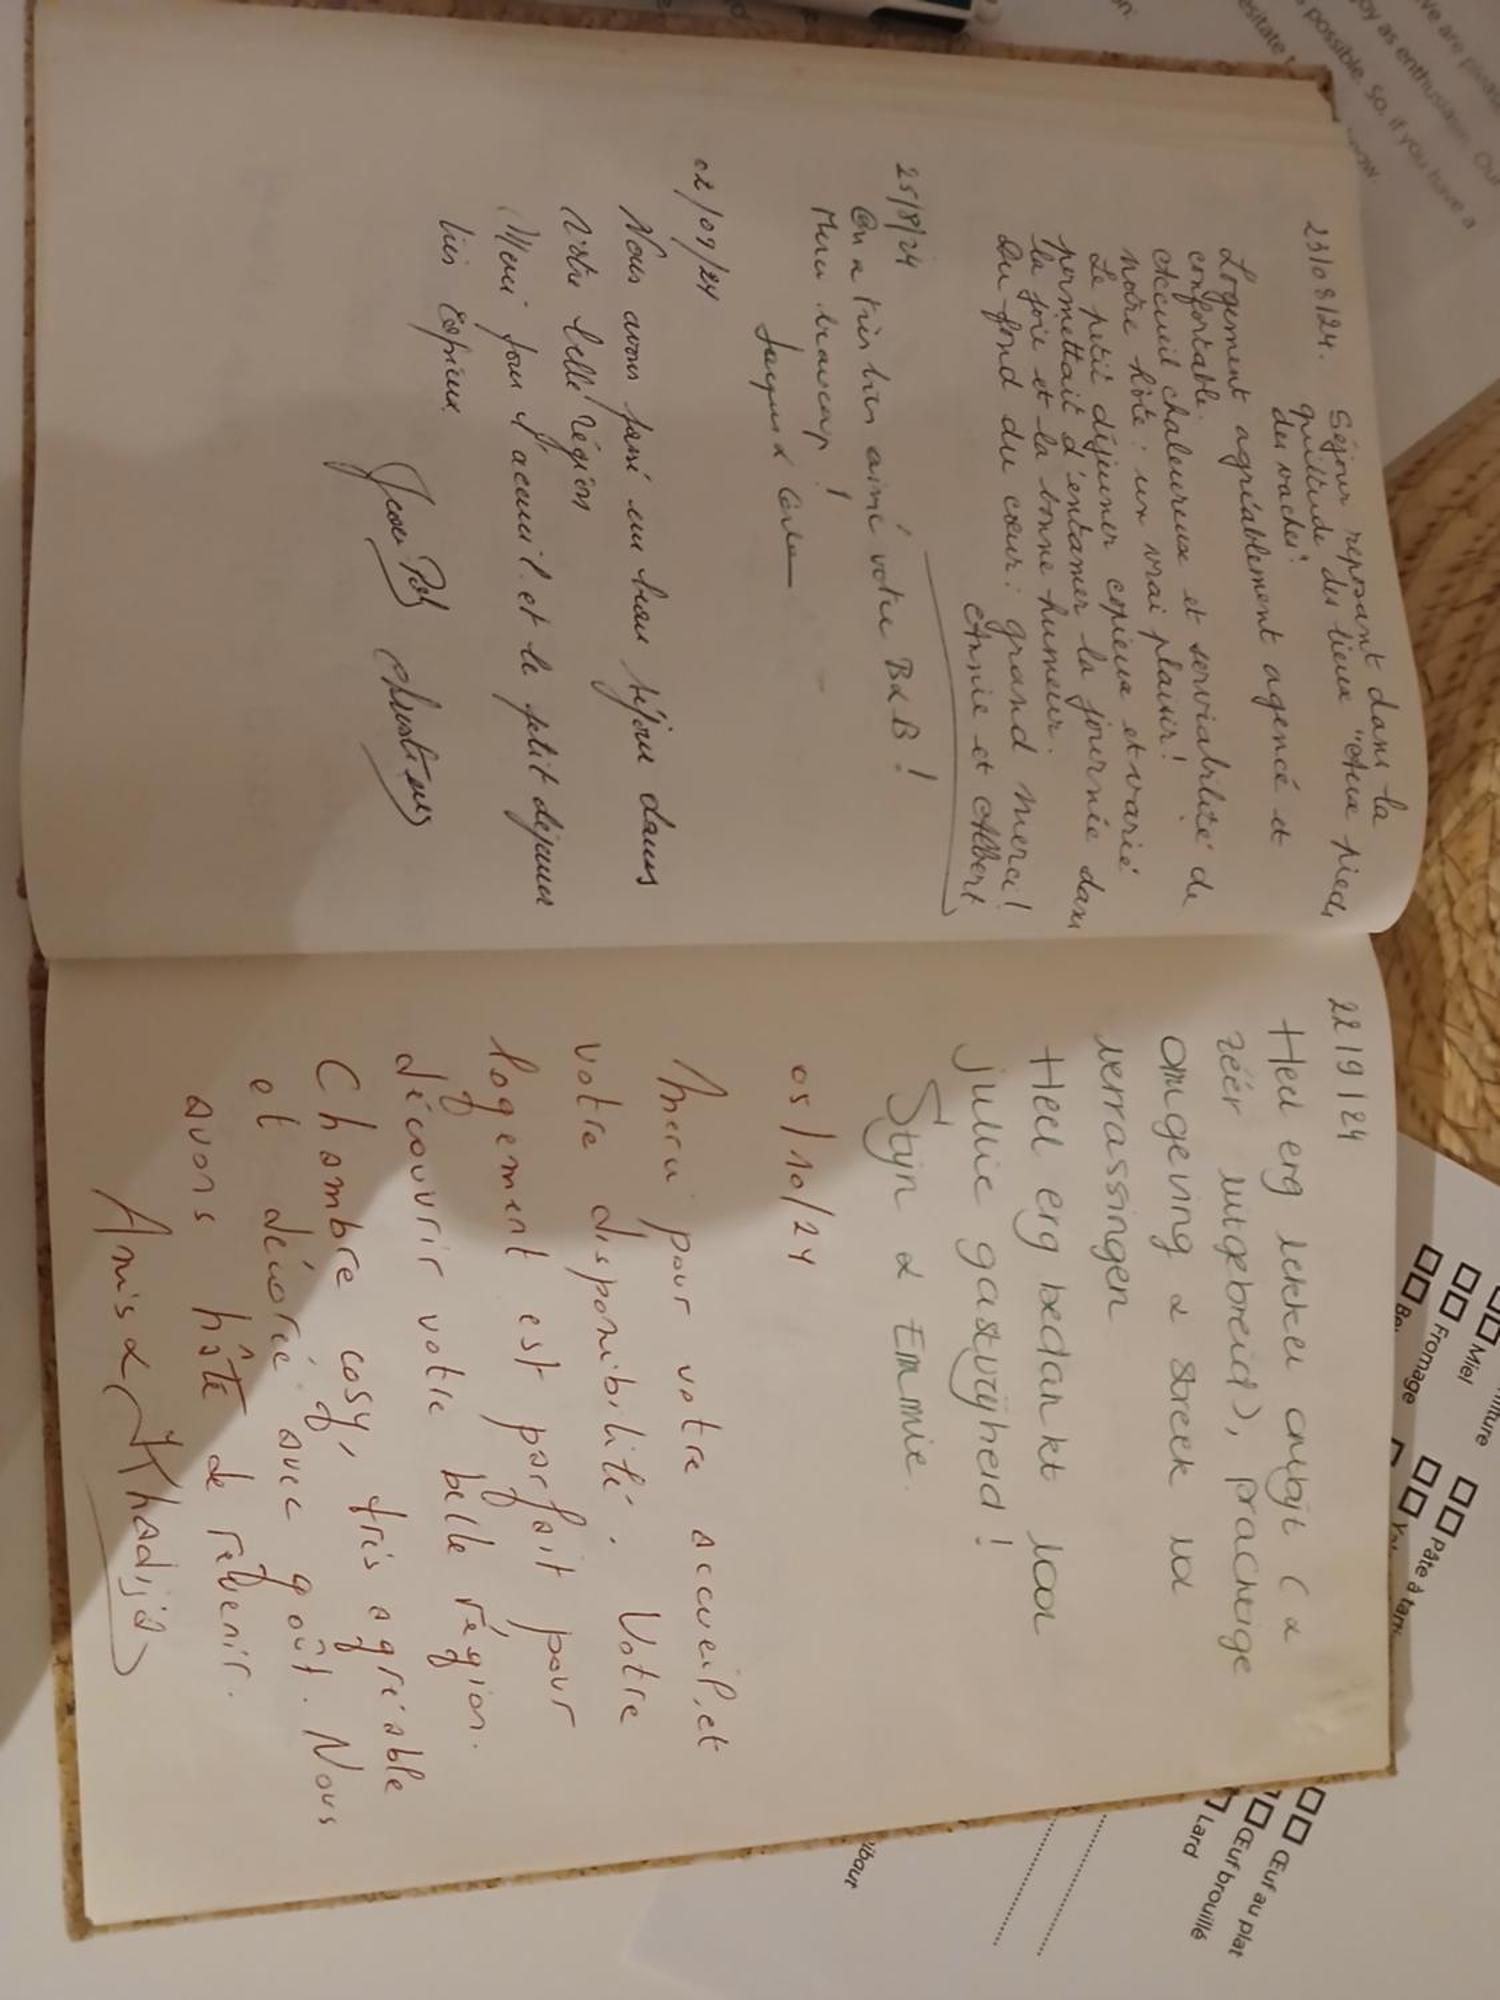 23/08/24. Séjour reposant dans la
quiétude des lieux "Aux pieds
des vaches".
Logement agréablement agencé et
confortable.
Accueil chaleureux et serviabilité de
notre hôte : un vrai plaisir!
Le petit déjeuner copieux et varié
permettait d'entamer la journée dans
la joie et la bonne humeur.
Du fond du cœur : grand merci!
Annie et Albert
25/8/24
On a très bien aimé votre B&B !
Merci beaucoup !
Jacques &
02/09/24
Nous avons passé un bon séjour dans
Votre belle région
Merci pour l'accueil et le petit déjeuner
très copieux.
Jean Pol
22/9/24
Heel erg lekker ontbijt (&
zéér uitgebreid), prachtige
omgeving & streek vd
verrassingen
Heel erg bedankt voor
jullie gastvrijheid!
Stijn & Emmie.
05/10/24
Merci pour votre accueil, et
votre disponibilité. Votre
logement est parfait pour
découvrir votre belle région.
Chambre cosy, très agréable
et décorée avec goût. Nous
avons hâte de revenir.
Anis & Khadija
Miel
Fromage
Pâte à tart
Œuf au plat
Œuf brouillé
Lard
possible. So, if you have a
joy as enthusias Our
we are pleas
esitate t